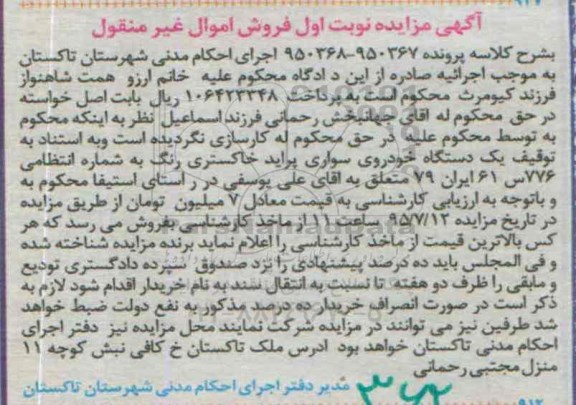 آگهی مزایده نوبت اول فروش اموال غیر منقول
بشرح کلاسه پرونده ۹۵۰۳۶۷-۹۵۰۳۶۸ اجرای احکام مدنی شهرستان تاکستان
به موجب اجرائیه صادره از این د ادگاه محکوم علیه خانم ارزو همت شاهنواز
فرزند کیومرث محکوم است به پرداخت ۱۰۶۴۲۲۳۴۸ ریال بابت اصل خواسته
در حق محکوم له اقای جهانبخش رحمانی فرزند اسماعیل نظر به اینکه محکوم
به توسط محکوم علیه در حق محکوم له کارسازی نگردیده است وبه استناد به
توقیف یک دستگاه خودروی سواری پراید خاکستری رنگ به شماره انتظامی
۷۷۶س ۶۱ ایران ۷۹ متعلق به اقای علی یوسفی در ر استای استیفا محکوم به
و باتوجه به ارزیابی کارشناسی به قیمت معادل ۷ میلیون تومان از طریق مزایده
در تاریخ مزایده ۹۵/۷/۱۳ ساعت ۱۱ از ماخذ کارشناسی بفروش می رسد که هر
کس بالاترین قیمت از ماخذ کارشناسی را اعلام نماید برنده مزایده شناخته شده
و فی المجلس باید ده درصد پیشنهادی را نزد صندوق سپرده دادگستری تودیع
و مابقی را ظرف دو هفته تا نسبت به انتقال سند به نام خریدار اقدام شود لازم به
ذکر است در صورت انصراف خریدار ده درصد مذکور به نفع دولت ضبط خواهد
شد طرفین نیز می توانند در مزایده شرکت نمایند محل مزایده نیز دفتر اجرای
احکام مدنی تاکستان خواهد بود ادرس ملک تاکستان خ کافی نبش کوچه ۱۱
منزل مجتبی رحمانی
مدیر دفتر اجرای احکام مدنی شهرستان تاکستان